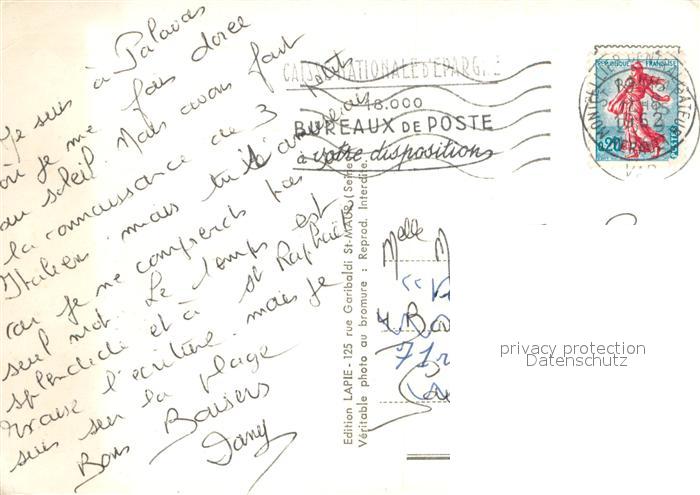 Je suis à Palavas
où je me fais dorée
au soleil. Nous avons fait
la connaissance de 3 petits
Italiens. mais tu
car je ne comprends pas
seul mot. Le temps est
splendide et à St Raphaël
excuse l'écriture. mais je
suis sur la plage
Bons Baisers
Dany
CAISSE NATIONALE D'EPARGNE
18.000
BUREAUX DE POSTE
à votre disposition
REPUBLIQUE FRANÇAISE
0,20
POSTES
Edition LAPIE - 125 rue Garibaldi St-MAUR (Seine)
Véritable photo au bromure : Reprod. Interdite
Melle M
privacy protection
Datenschutz